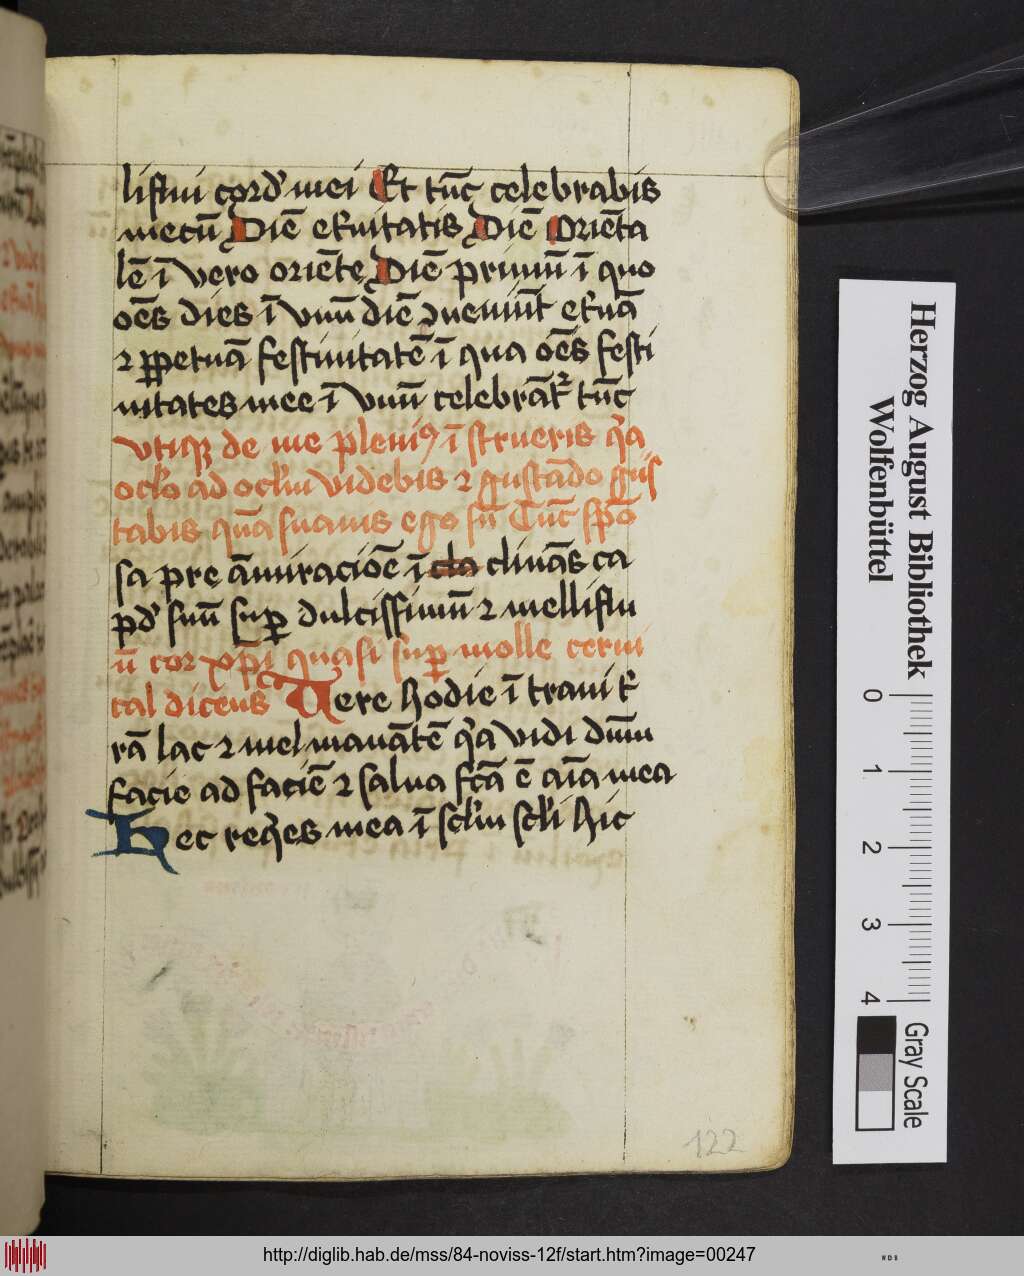 liflui cord̉ mei Et tūc celebrabis
mecū Diē et̉nitatis Diē Oriēta
lē ī vero oriēte Diē primū ī quo
oēs dies ī vnū diē ꝯueniūt et̉nā
⁊ ꝑpetuā festiuitatē ī qua oēs festi
uitates mee ī vnū celebrāt᷑ tūc
vtiqꝫ de me pleniꝰ ī strueris q̉a
oclo ad oclm videbis ⁊ gustādo gus
tabis quā suauis ego sū Tūc spō
sa pre āmiracioē ī cla clināsca
pd̉ suū suꝑ dulcissimū ⁊ melliflu
ū cor xp̄i quasi suꝑ molle cerui
cal dicens Vere hodie ī traui t̉
rā lac ⁊ mel manātē q̉a vidi dn̄m
facie ad faciē ⁊ salua fc̄a ē aīa mea
Hec req̉es mea ī sclm scli hic
122
Herzog August Bibliothek
Wolfenbüttel
0 1 2 3 4
Gray Scale
http://diglib.hab.de/mss/84-noviss-12f/start.htm?image=00247